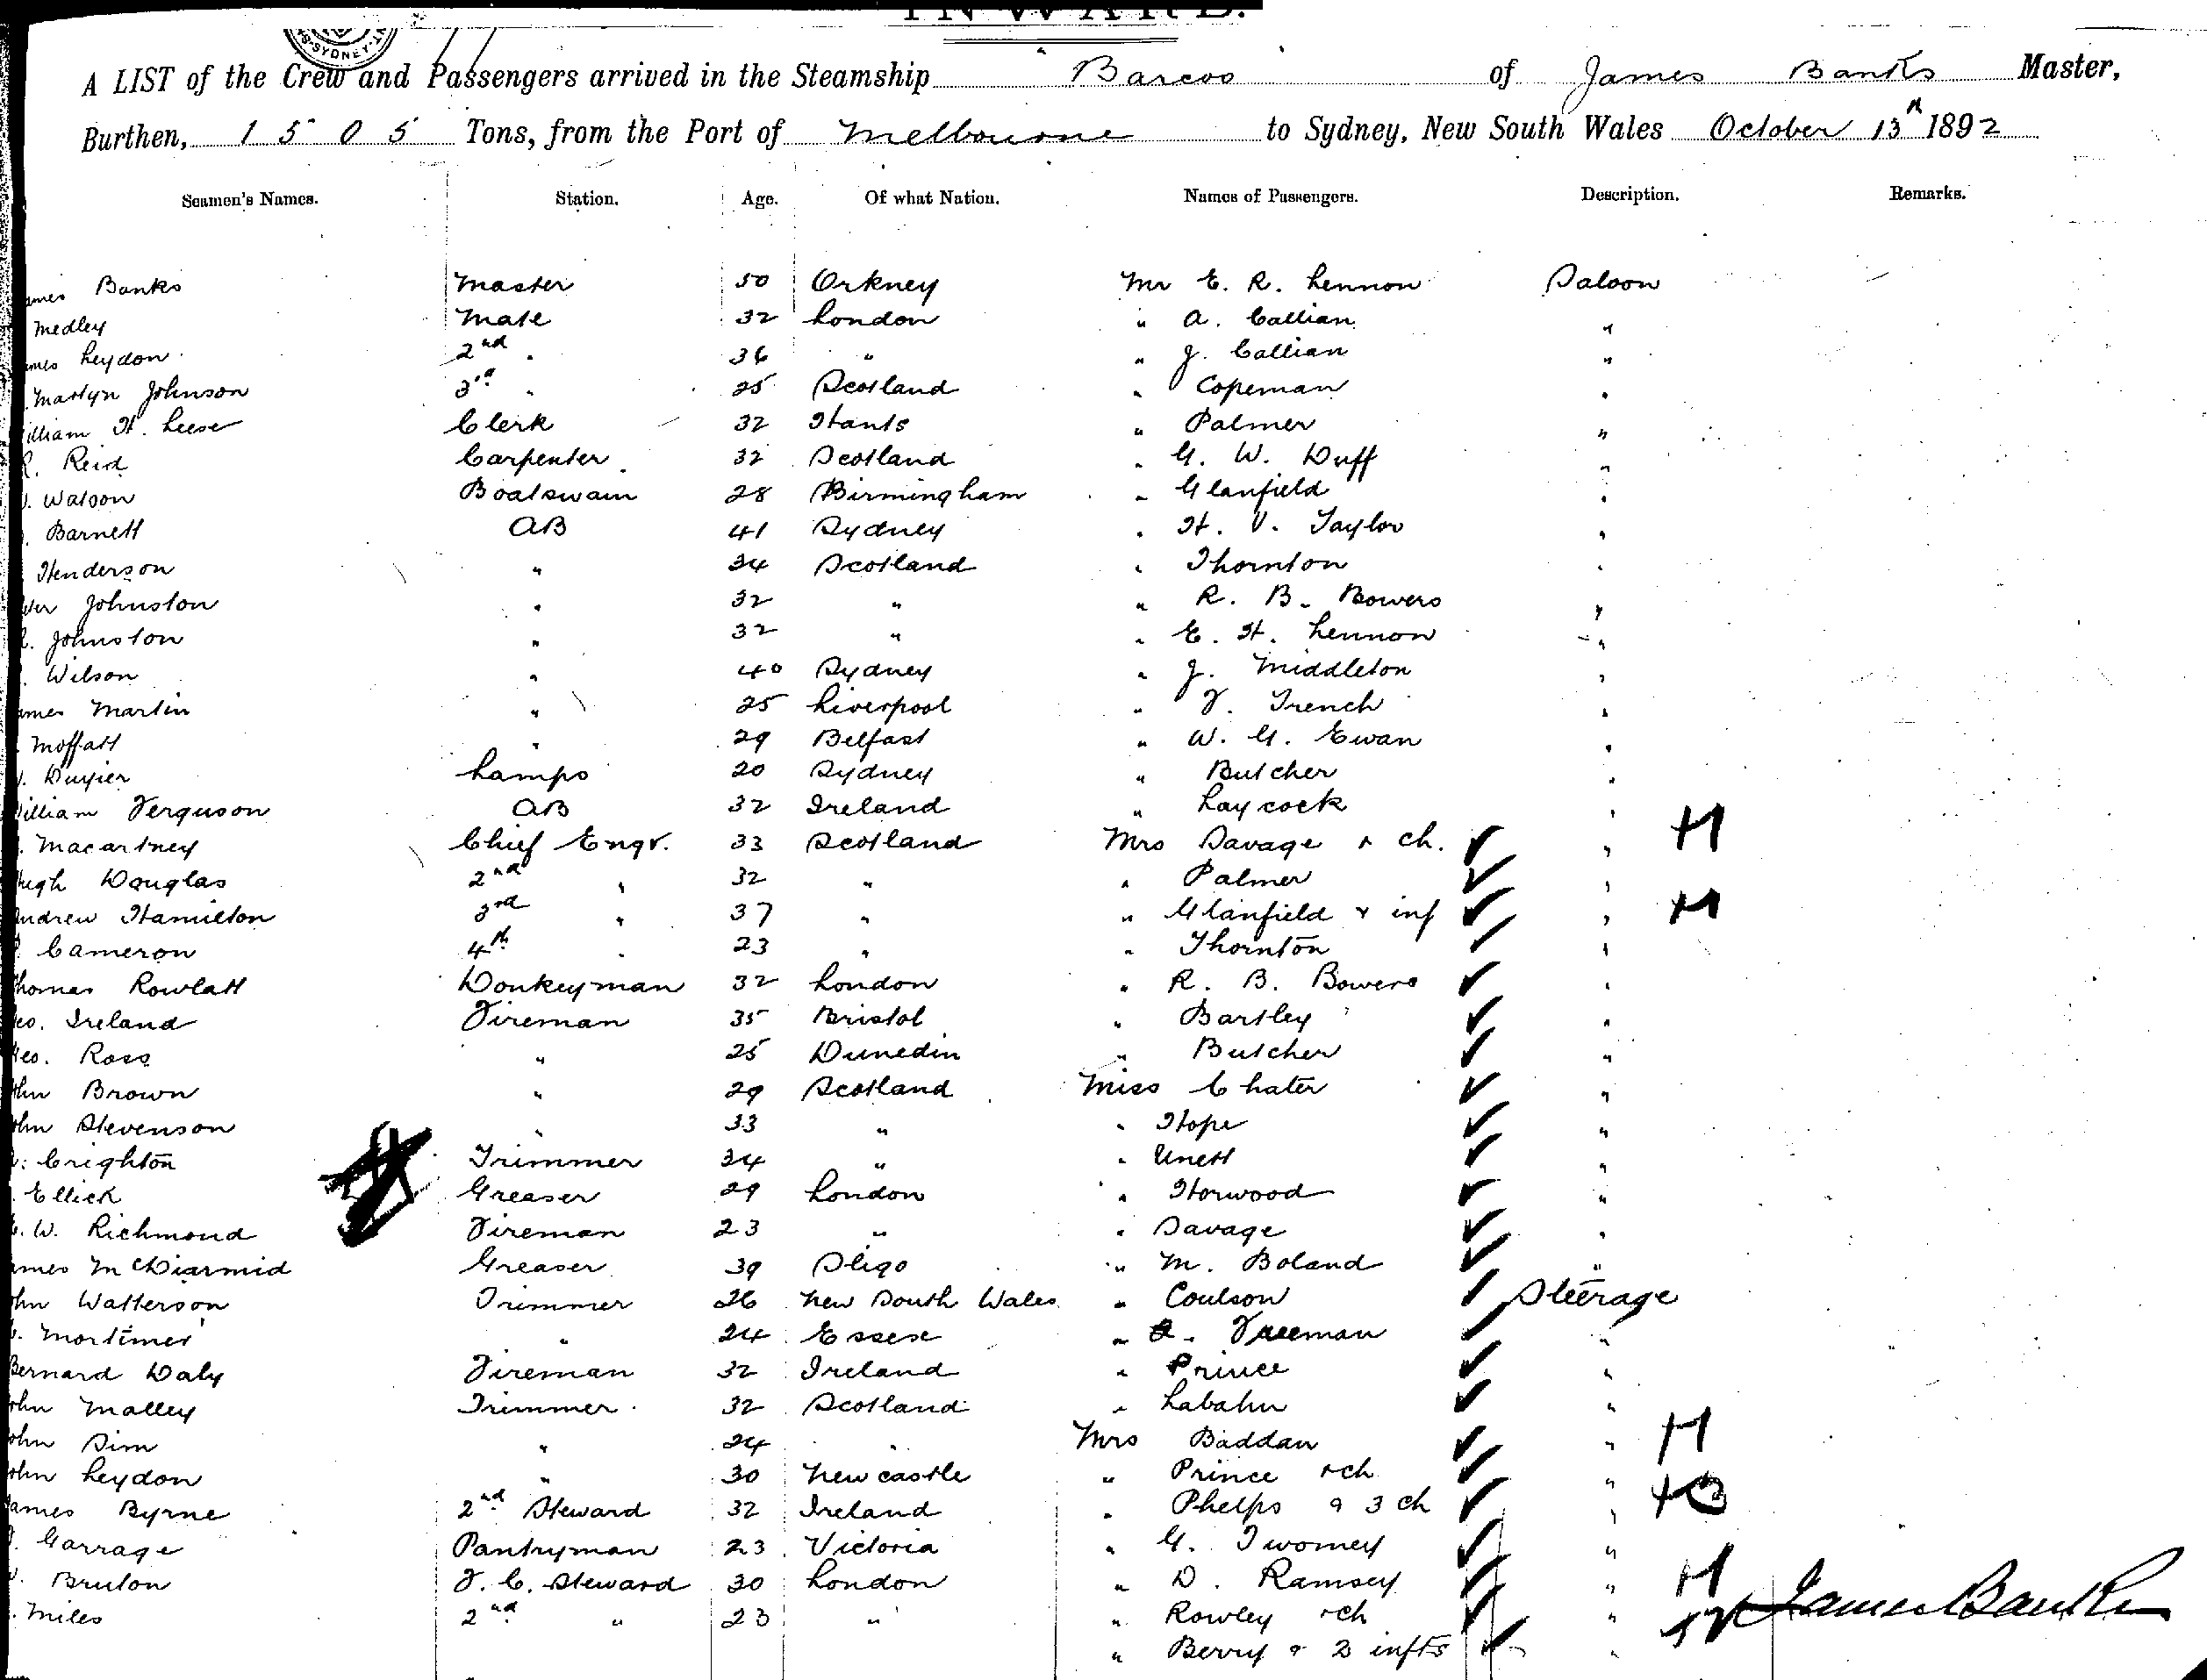 INWARD.
SYDNEY
A LIST of the Crew and Passengers arrived in the Steamship Barcoo of James Banks Master,
Burthen, 1505 Tons, from the Port of Melbourne to Sydney, New South Wales October 13th 1892
Seamen's Names. Station. Age. Of what Nation. Names of Passengers. Description. Remarks.
ames Banks Master 50 Orkney Mr E. R. Lennon Saloon
Medley Mate 32 London " A. Callian "
ames Leydon 2nd " 36 " " J. Callian "
Martyn Johnson 3rd " 25 Scotland " Copeman "
illiam H. Leese Clerk 32 Hants " Palmer "
R. Reid Carpenter 32 Scotland " G. W. Duff "
. Watson Boatswain 28 Birmingham " Glanfield "
. Barnett AB 41 Sydney " H. V. Taylor "
Henderson " 34 Scotland " Thornton "
ter Johnston " 32 " " R. B. Bowers "
. Johnston " 32 " " E. H. Lennon "
. Wilson " 40 Sydney " J. Middleton "
ames Martin " 25 Liverpool " F. Trench "
. Moffatt " 29 Belfast " W. G. Ewan "
. Lamps 20 Sydney " Butcher "
illiam Ferguson AB 32 Ireland " Laycock "
. Macartney Chief Engr. 33 Scotland Mrs Savage & ch. " +1
ugh Douglas 2nd " 32 " " Palmer "
ndrew Hamilton 3rd " 37 " " Glanfield & inf " +1
Cameron 4th " 23 " " Thornton "
homas Rowlatt Donkeyman 32 London " R. B. Bowers "
eo. Ireland Fireman 35 Bristol " Bartley "
eo. Ross " 25 Dunedin " Butcher "
ohn Brown " 29 Scotland Miss Chater "
ohn Stevenson " 33 " " Hope "
. Crighton Trimmer 34 " " Unett "
. Ellick Greaser 29 London " Horwood "
. W. Richmond Fireman 23 " " Savage "
ames McDiarmid Greaser 39 Sligo " M. Boland "
ohn Watterson Trimmer 26 New South Wales " Coulson Steerage
. Mortimer " 24 Essex " Freeman "
Bernard Daly Fireman 32 Ireland " Prince "
ohn Malley Trimmer 32 Scotland " Labahn "
ohn Sim " 24 " Mrs Baddan " +1
ohn Leydon " 30 Newcastle " Prince & ch "
ames Byrne 2nd Steward 32 Ireland " Phelps & 3 ch " +3
. Garrage Pantryman 23 Victoria " G. Twomey "
. Bruton F. C. Steward 30 London " D. Ramsey " +1
. Miles 2nd " 23 " " Rowley & ch "
" Berry & 2 infts "
James Banks